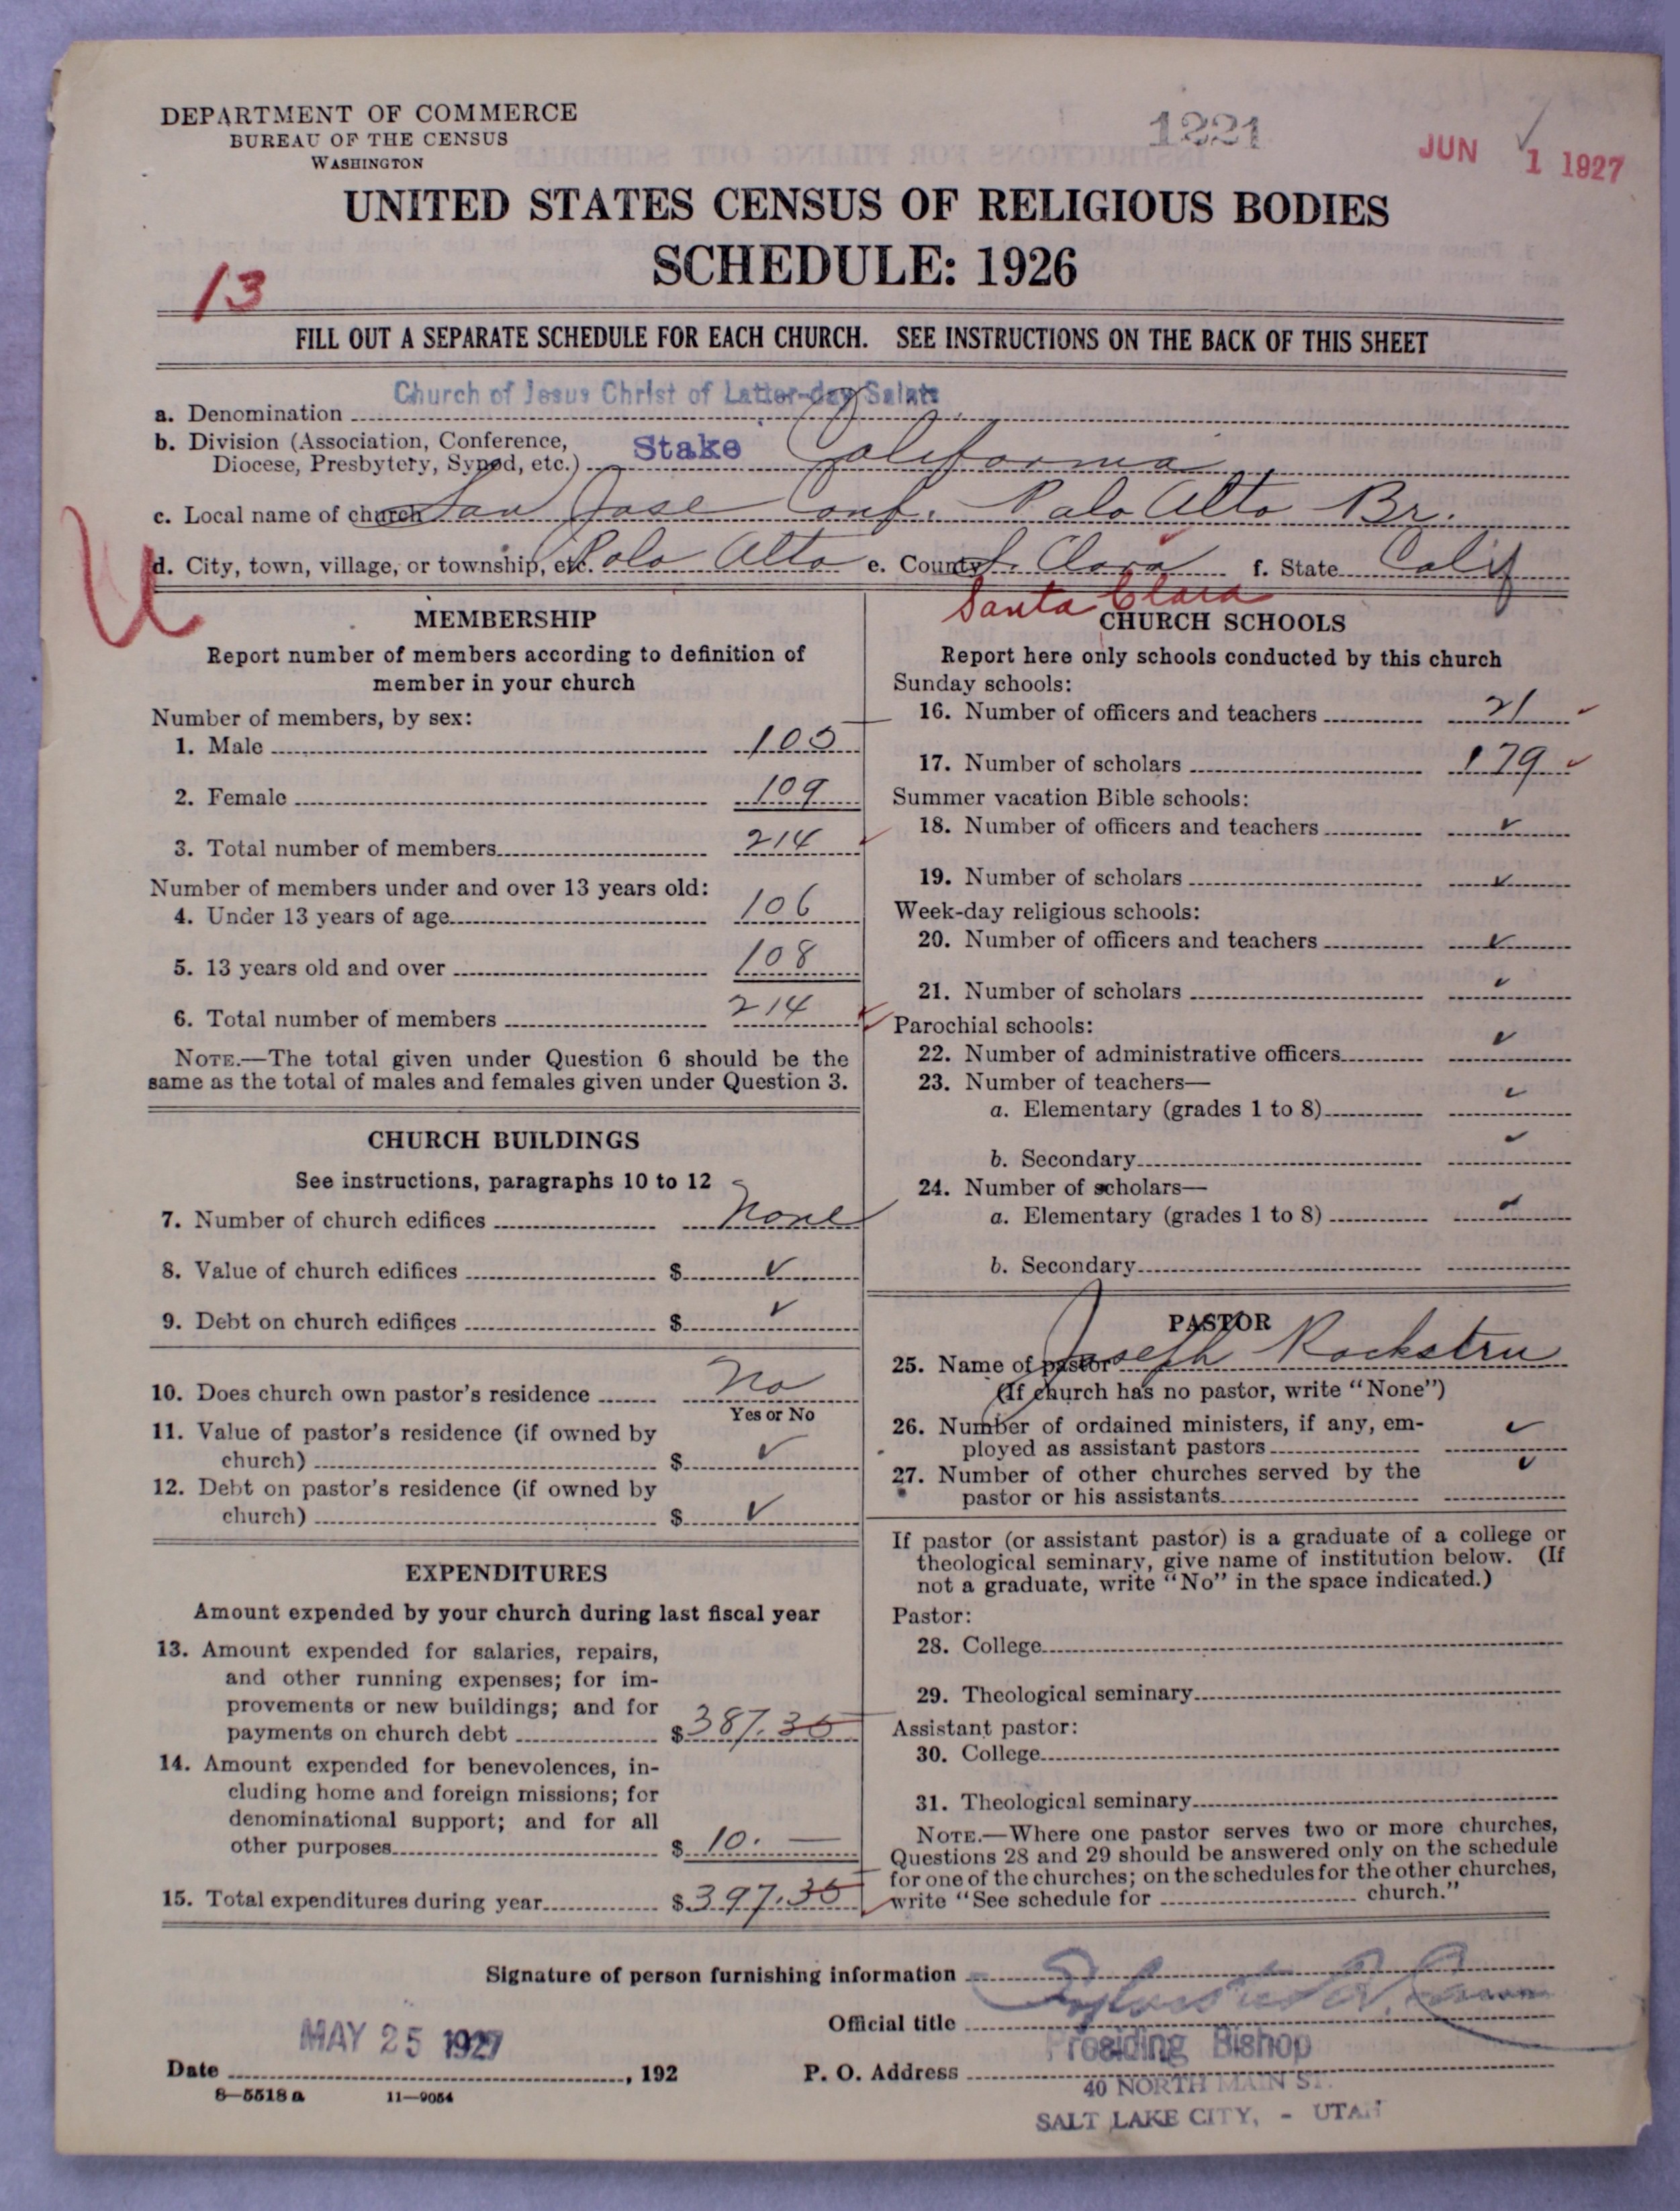 DEPARTMENT OF COMMERCE
BUREAU OF THE CENSUS
WASHINGTON
1221
JUN 1 1927
UNITED STATES CENSUS OF RELIGIOUS BODIES
SCHEDULE: 1926
13
FILL OUT A SEPARATE SCHEDULE FOR EACH CHURCH. SEE INSTRUCTIONS ON THE BACK OF THIS SHEET
a. Denomination Church of Jesus Christ of Latter-day Saints
b. Division (Association, Conference,
Diocese, Presbytery, Synod, etc.) Stake California
c. Local name of church San Jose Conf. Palo Alto Br.
d. City, town, village, or township, etc. Palo Alto e. County S. Clara f. State Calif
Santa Clara
MEMBERSHIP
Report number of members according to definition of
member in your church
Number of members, by sex:
1. Male 105
2. Female 109
3. Total number of members 214
Number of members under and over 13 years old:
4. Under 13 years of age 106
5. 13 years old and over 108
6. Total number of members 214
NOTE.—The total given under Question 6 should be the
same as the total of males and females given under Question 3.
CHURCH BUILDINGS
See instructions, paragraphs 10 to 12
7. Number of church edifices None
8. Value of church edifices $ ✓
9. Debt on church edifices $ ✓
10. Does church own pastor's residence No
Yes or No
11. Value of pastor's residence (if owned by
church) $ ✓
12. Debt on pastor's residence (if owned by
church) $ ✓
EXPENDITURES
Amount expended by your church during last fiscal year
13. Amount expended for salaries, repairs,
and other running expenses; for im-
provements or new buildings; and for
payments on church debt $ 387.35
14. Amount expended for benevolences, in-
cluding home and foreign missions; for
denominational support; and for all
other purposes $ 10. —
15. Total expenditures during year $ 397.35
CHURCH SCHOOLS
Report here only schools conducted by this church
Sunday schools:
16. Number of officers and teachers 21
17. Number of scholars 179
Summer vacation Bible schools:
18. Number of officers and teachers ✓
19. Number of scholars ✓
Week-day religious schools:
20. Number of officers and teachers ✓
21. Number of scholars ✓
Parochial schools:
22. Number of administrative officers ✓
23. Number of teachers—
a. Elementary (grades 1 to 8) ✓
b. Secondary ✓
24. Number of scholars—
a. Elementary (grades 1 to 8) ✓
b. Secondary
PASTOR
25. Name of pastor Joseph Rockstru
(If church has no pastor, write "None")
26. Number of ordained ministers, if any, em-
ployed as assistant pastors ✓
27. Number of other churches served by the
pastor or his assistants ✓
If pastor (or assistant pastor) is a graduate of a college or
theological seminary, give name of institution below. (If
not a graduate, write "No" in the space indicated.)
Pastor:
28. College
29. Theological seminary
Assistant pastor:
30. College
31. Theological seminary
NOTE.—Where one pastor serves two or more churches,
Questions 28 and 29 should be answered only on the schedule
for one of the churches; on the schedules for the other churches,
write "See schedule for church."
Signature of person furnishing information
Official title Presiding Bishop
Date MAY 25 1927, 192
P. O. Address 40 NORTH MAIN ST.
SALT LAKE CITY, - UTAH
8—5518 a 11—9054